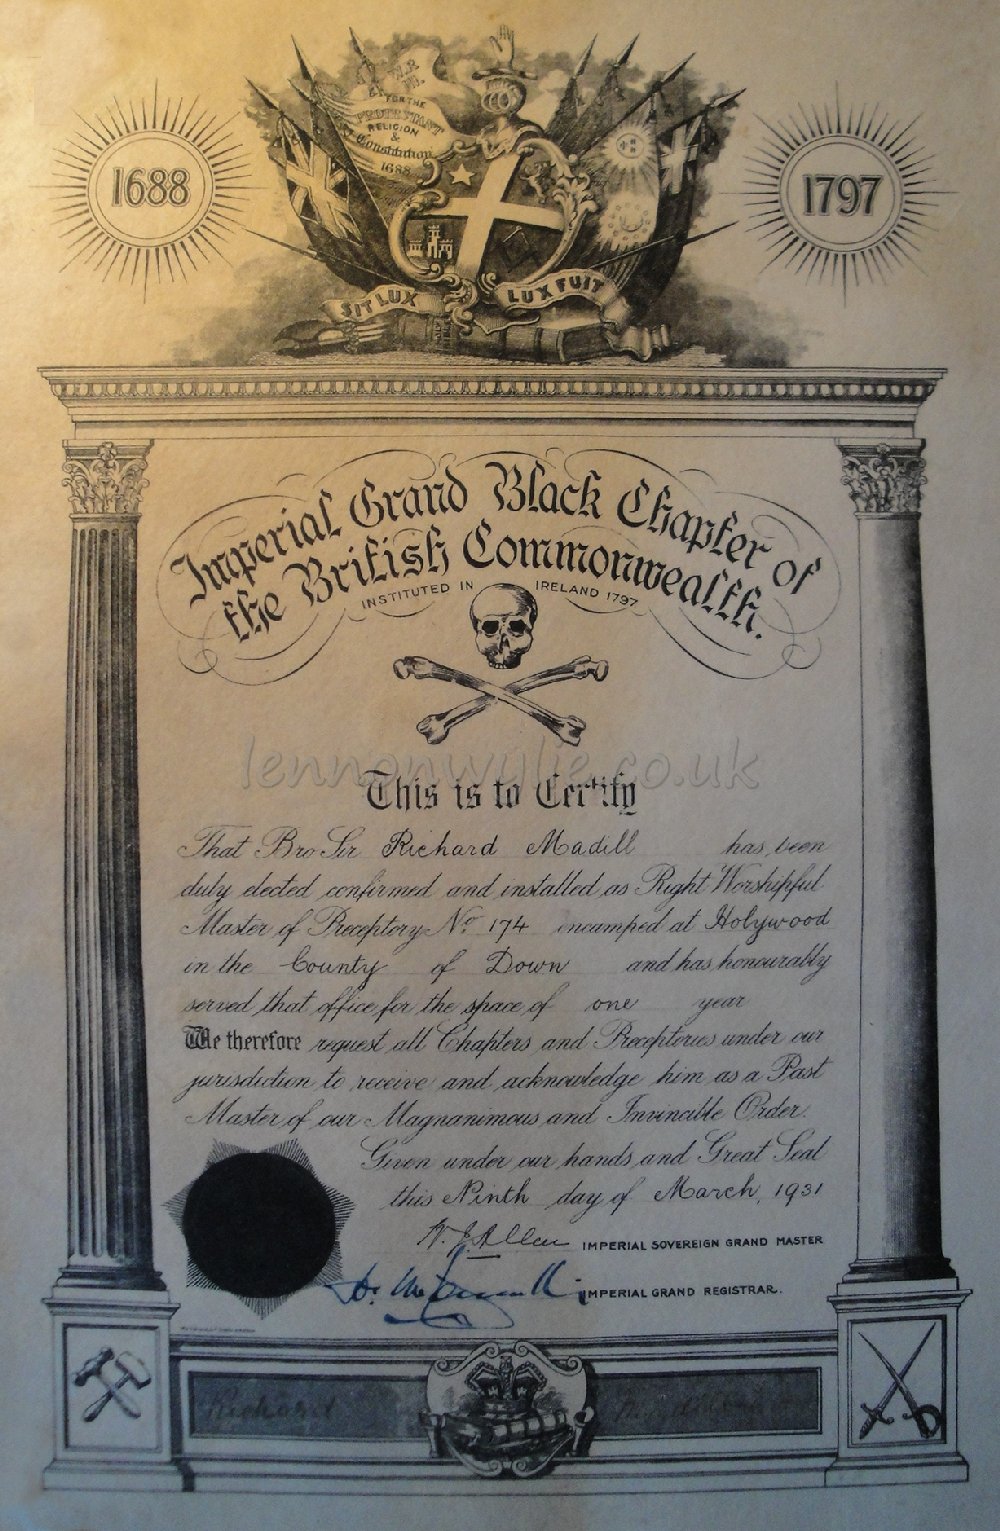 W.R.
III.
FOR THE
PROTESTANT
RELIGION
&
Constitution
1688
1688
1797
SIT LUX LUX FUIT
HOLY BIBLE
Imperial Grand Black Chapter of
the British Commonwealth.
INSTITUTED IN IRELAND 1797
lennonwylie.co.uk
This is to Certify
That Bro Sir Richard Madill has been
duly elected confirmed and installed as Right Worshipful
Master of Preceptory No 174 encamped at Holywood
in the County of Down and has honourably
served that office for the space of one year
We therefore request all Chapters and Preceptories under our
jurisdiction to receive and acknowledge him as a Past
Master of our Magnanimous and Invincible Order.
Given under our hands and Great Seal
this Ninth day of March, 1931
W. J. Allen IMPERIAL SOVEREIGN GRAND MASTER
IMPERIAL GRAND REGISTRAR.
Richard